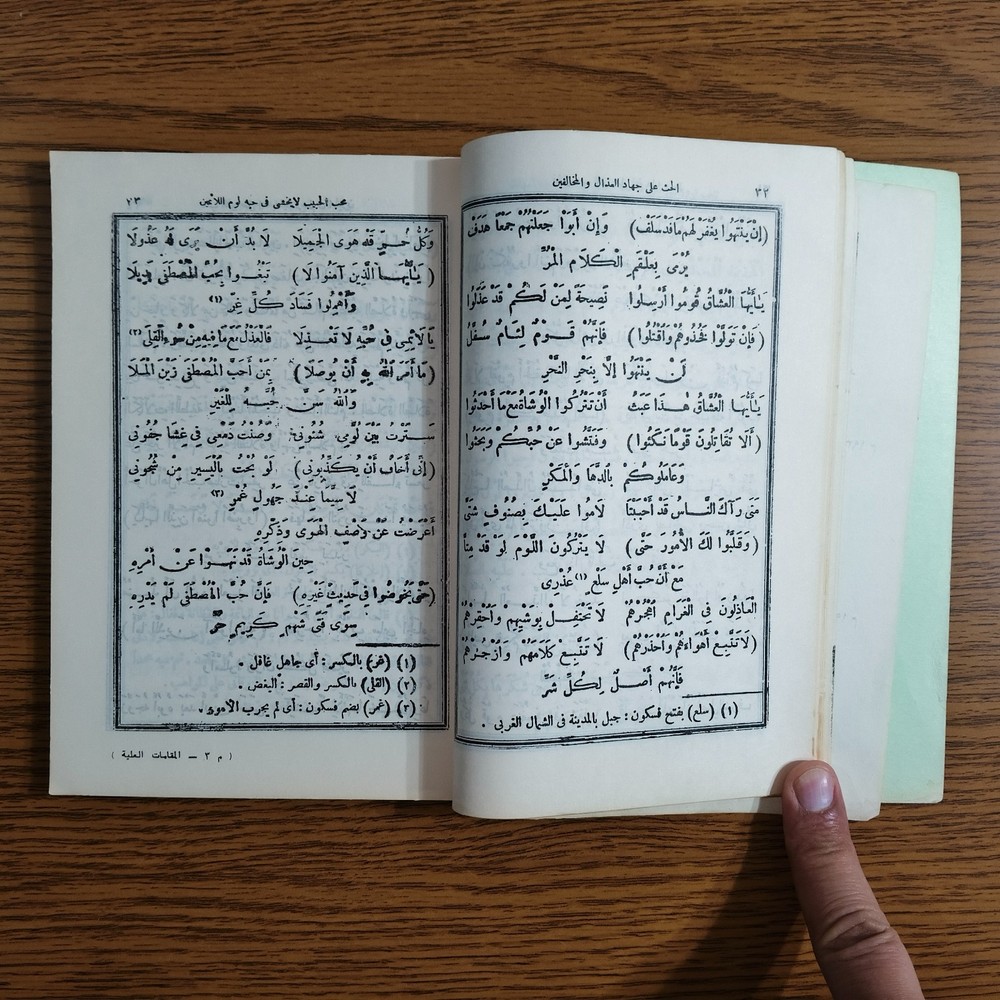 الحث على جهاد العذال والمخالفين ٣٢
(إِنْ يَنْتَهُوا يُغْفَرْ لَهُمْ مَا قَدْ سَلَفْ) وَإِنْ أَبَوْا جَعَلْتُهُمْ جَمْعًا هَدَفْ
يُرْمَى بِعَلْقَمِ الْكَلَامِ الْمُرِّ
يَٰأَيُّهَا الْعُشَّاقُ قُومُوا أَرْسِلُوا نَصِيحَةً لِمَنْ لَكُمْ قَدْ عَذَلُوا
(فَإِنْ تَوَلَّوْا فَخُذُوهُمْ وَاقْتُلُوا) فَإِنَّهُمْ قَوْمٌ لِئَامٌ سُفَّلُ
لَنْ يَنْتَهُوا إِلَّا بِنَحْرِ النَّحْرِ
يَٰأَيُّهَا الْعُشَّاقُ هٰذَا عَبَثُ أَنْ تَتْرُكُوا الْوُشَاةَ مَعْ مَا أَحْدَثُوا
(أَلَا تُقَاتِلُونَ قَوْمًا نَكَثُوا) وَفَتَّشُوا عَنْ حُبِّكُمْ وَبَحَثُوا
وَعَامَلُوكُمْ بِالدَّهَا وَالْمَكْرِ
مَتَى رَآكَ النَّاسُ قَدْ أَحْبَبْتَا لَامُوا عَلَيْكَ بِصُنُوفٍ شَتَّى
(وَقَلَّبُوا لَكَ الْأُمُورَ حَتَّى) لَا يَتْرُكُونَ اللَّوْمَ لَوْ قَدْ مِتَّا
مَعْ أَنَّ حُبَّ أَهْلِ سَلْعٍ (١) عُذْرِى
الْعَاذِلُونَ فِي الْغَرَامِ اهْجُرْهُمْ لَا تَحْتَفِلْ بِوَشْيِهِمْ وَاحْقِرْهُمْ
(لَا تَتَّبِعْ أَهْوَاءَهُمْ وَاحْذَرْهُمْ) لَا تَتَّبِعْ كَلَامَهُمْ وَازْجُرْهُمْ
فَإِنَّهُمْ أَصْلٌ لِكُلِّ شَرِّ
(١) (سلع) بفتح فسكون : جبل بالمدينة فى الشمال الغربى .
محب الحبيب لا يخشى فى حبه لوم اللائمين ٣٣
وَكُلُّ حُرٍّ قَدْ هَوَى الْجَمِيلَا لَا بُدَّ أَنْ يَرَى لَهُ عَذُولَا
(يَٰأَيُّهَا الَّذِينَ آمَنُوا لَا) تَبْغُوا بِحُبِّ الْمُصْطَفَى بَدِيلَا
وَأَهْمِلُوا فَسَادَ كُلِّ غِرِّ (١)
يَا لَائِمِى فِى حُبِّهِ لَا تَعْذِلَا فَالْعَذْلُ مَعْ مَا فِيهِ مِنْ سُوءِ الْقِلَى (٢)
(مَا أَمَرَ اللهُ بِهِ أَنْ يُوصَلَا) بِمَنْ أَحَبَّ الْمُصْطَفَى زَيْنَ الْمَلَا
وَاللهُ سَنَّ حُبَّهُ لِلْغَيْرِ
سَتَرْتُ بَيْنَ لُوَّمِى شُئُونِى وَصُنْتُ دَمْعِى فِى غِشَا جُفُونِى
(إِنِّى أَخَافُ أَنْ يُكَذِّبُونِى) لَوْ بُحْتُ بِالْيَسِيرِ مِنْ شُجُونِى
لَا سِيَّمَا عِنْدَ جَهُولٍ غُمْرِ (٣)
أَعْرَضْتُ عَنْ وَصْفِ الْهَوَى وَذِكْرِهِ
حِينَ الْوُشَاةُ قَدْ نَهَوْا عَنْ أَمْرِهِ
(حَتَّى يَخُوضُوا فِى حَدِيثٍ غَيْرِهِ) فَإِنَّ حُبَّ الْمُصْطَفَى لَمْ يَدْرِهِ
سِوَى فَتًى شَهْمٍ كَرِيمٍ حُرِّ
(١) (غر) بالكسر : أى جاهل غافل .
(٢) (القلى) بالكسر والقصر : البغض .
(٣) (غمر) بضم فسكون : أى لم يجرب الأمور .
( م ٣ — المقامات العلية )